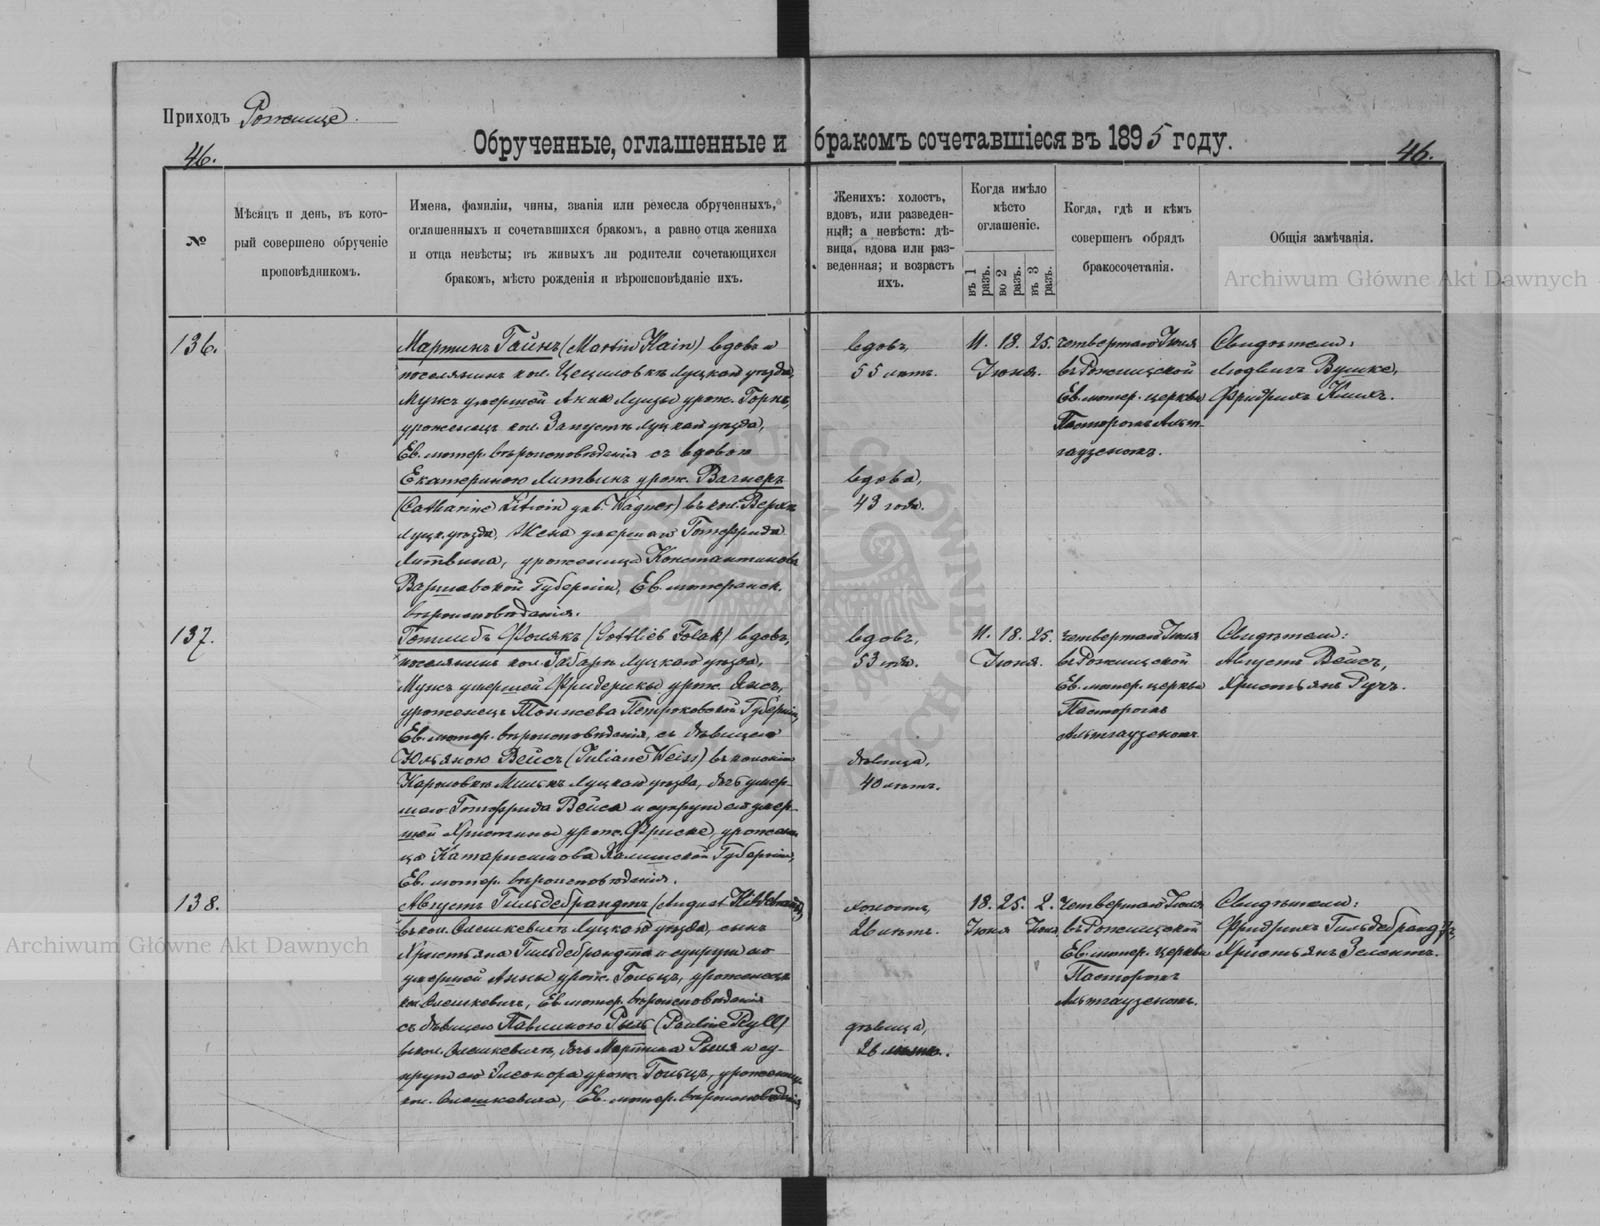 Приходъ Рожище.
46.
Обрученные, оглашенные и бракомъ сочетавшіеся въ 1895 году.
46.
№
Мѣсяцъ и день, въ кото-
рый совершено обрученіе
проповѣдникомъ.
Имена, фамиліи, чины, званія или ремесла обрученныхъ,
оглашенныхъ и сочетавшихся бракомъ, а равно отца жениха
и отца невѣсты; въ живыхъ ли родители сочетающихся
бракомъ, мѣсто рожденія и вѣроисповѣданіе ихъ.
Женихъ: холостъ,
вдовъ, или разведен-
ный; а невѣста: дѣ-
вица, вдова или раз-
веденная; и возрастъ
ихъ.
Когда имѣло
мѣсто
оглашеніе.
въ 1 разъ.
во 2 разъ.
въ 3 разъ.
Когда, гдѣ и кѣмъ
совершенъ обрядъ
бракосочетанія.
Общія замѣчанія.
Archiwum Główne Akt Dawnych
136.
Мартинъ Гайнъ (Martin Hain) вдовъ и
поселянинъ кол. Цециловкѣ Луцкаго уѣзда,
Мужъ умершей Анны Луизы урож. Горнъ,
уроженецъ кол. Запустъ Луцкаго уѣзда,
Ев. лютер. вѣроисповѣданія съ вдовою
Екатериною Литвинъ урож. Вагнеръ
(Catharine Litwin geb. Wagner) въ кол.
Луцк. уѣзда, Жена умершаго Готфрида
Литвина, уроженица Константинова
Варшавской Губерніи, Ев. лютеранск.
вѣроисповѣданія.
вдовъ,
55 лѣтъ.
вдова,
43 года.
11. 18. 25.
Іюня.
четвертаго Іюля
въ Рожищской
Ев. лютер. церкви
Пасторомъ Альт-
гаузеномъ.
Свидѣтели:
Людвигъ Вушке,
Фридрихъ Климъ.
137.
Готлибъ Фолякъ (Gottlieb Folak) вдовъ,
поселянинъ кол. Габаръ Луцкаго уѣзда,
Мужъ умершей Фридерики урож. Янсъ,
уроженецъ Петроковской Губерніи,
Ев. лютер. вѣроисповѣданія, съ дѣвицею
Юльяною Вейсъ (Juliane Weiss) въ колоніи
Луцкаго уѣзда, дочь умер-
шаго Готфрида Вейса и супруги его умер-
шей Христины урож. Фриске, урожени-
ца Калишской Губерніи,
Ев. лютер. вѣроисповѣданія.
вдовъ,
53 года.
дѣвица,
40 лѣтъ.
11. 18. 25.
Іюня.
четвертаго Іюля
въ Рожищской
Ев. лютер. церкви
Пасторомъ
Альтгаузеномъ
Свидѣтели:
Августъ Вейсъ,
Христьянъ Ручъ.
138.
Августъ Гильдебрандтъ (August Hildebrandt)
въ кол. Олешкевичъ Луцкаго уѣзда, сынъ
Христьяна Гильдебрандта и супруги его
умершей Анны урож. Гольцъ, уроженецъ
кол. Олешкевичъ, Ев. лютер. вѣроисповѣданія
съ дѣвицею Павлиною Рыль (Pauline Ryll)
въ кол. Олешкевичъ, дочь Мартина Рыля и су-
пруги его Элеонора урож. Гольцъ, уроженица
кол. Олешкевича, Ев. лютер. вѣроисповѣданія
холостъ,
26 лѣтъ.
дѣвица,
26 лѣтъ.
18. 25. 2.
Іюня Іюля
четвертаго Іюля
въ Рожищской
Ев. лютер. церкви
Пасторомъ
Альтгаузеномъ.
Свидѣтели:
Фридрихъ Гильдебрандтъ,
Христьянъ Зелентъ.
Archiwum Główne Akt Dawnych